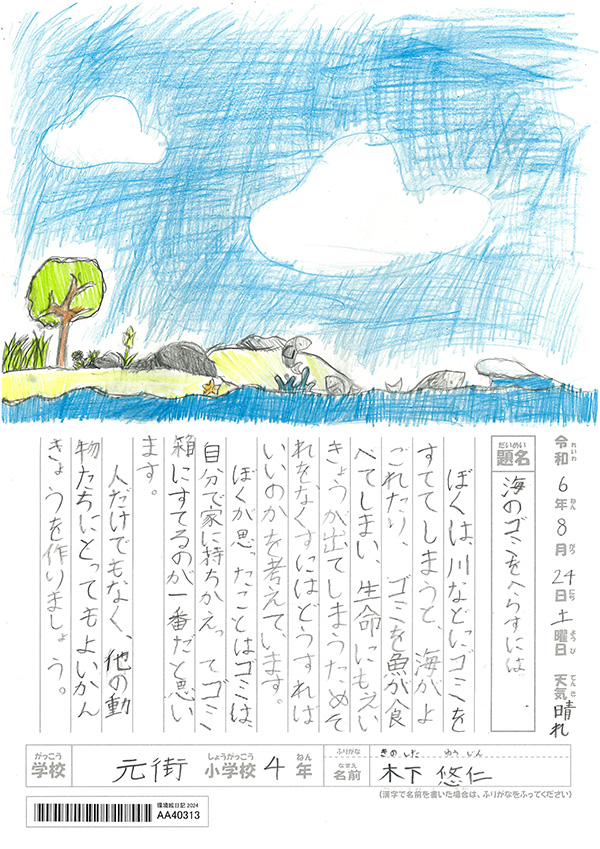 令和6年8月24日土曜日 天気晴れ
れいわ ねん がつ にち ようび てんき
だいめい
題名 海のゴミをへらすには
ぼくは、川などにゴミを
すててしまうと、海がよ
ごれたり、ゴミを魚が食
べてしまい、生命にもえい
きょうが出てしまうためそ
れをなくすにはどうすれば
いいのかを考えています。
ぼくが思ったことはゴミは、
自分で家に持ちかえってゴミ
箱にすてるのが一番だと思い
ます。
人だけでもなく、他の動
物たちにとってもよいかん
きょうを作りましょう。
がっこう しょうがっこう ねん
学校 元街 小学校 4年
ふりがな きのした ゆうじん
なまえ
名前 木下 悠仁
(漢字で名前を書いた場合は、ふりがなをふってください)
環境絵日記 2024
AA40313